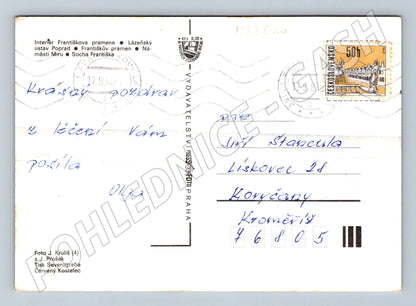 Interiér Františkova pramene • Lázeňský
ústav Poprad • Františkův pramen • Ná-
městí Míru • Socha Františka
Krásný pozdrav
z léčení Vám
posílá
Olga
Foto J. Kruliš (4)
a J. Prošek
Tisk Severografie
Červený Kostelec
VYDAVATELSTVÍ PRESSFOTO PRAHA
50h
ČESKOSLOVENSKO
pan
Jiří Stancula
Lískovec 28
Koryčany
Kroměříž
76805
POHLEDNICE - GASH